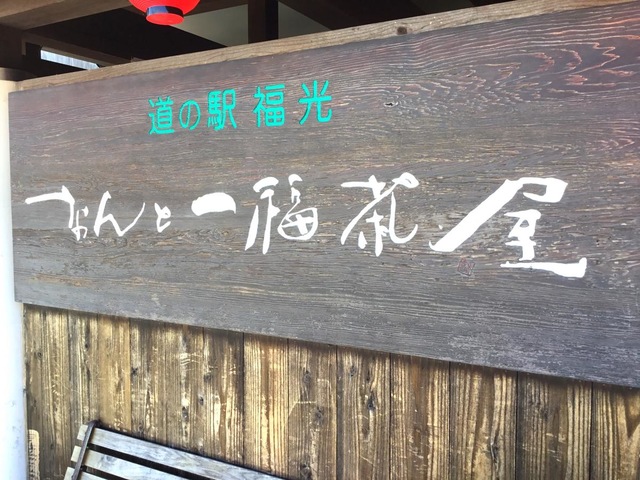 道の駅 福光
なんと一福茶屋